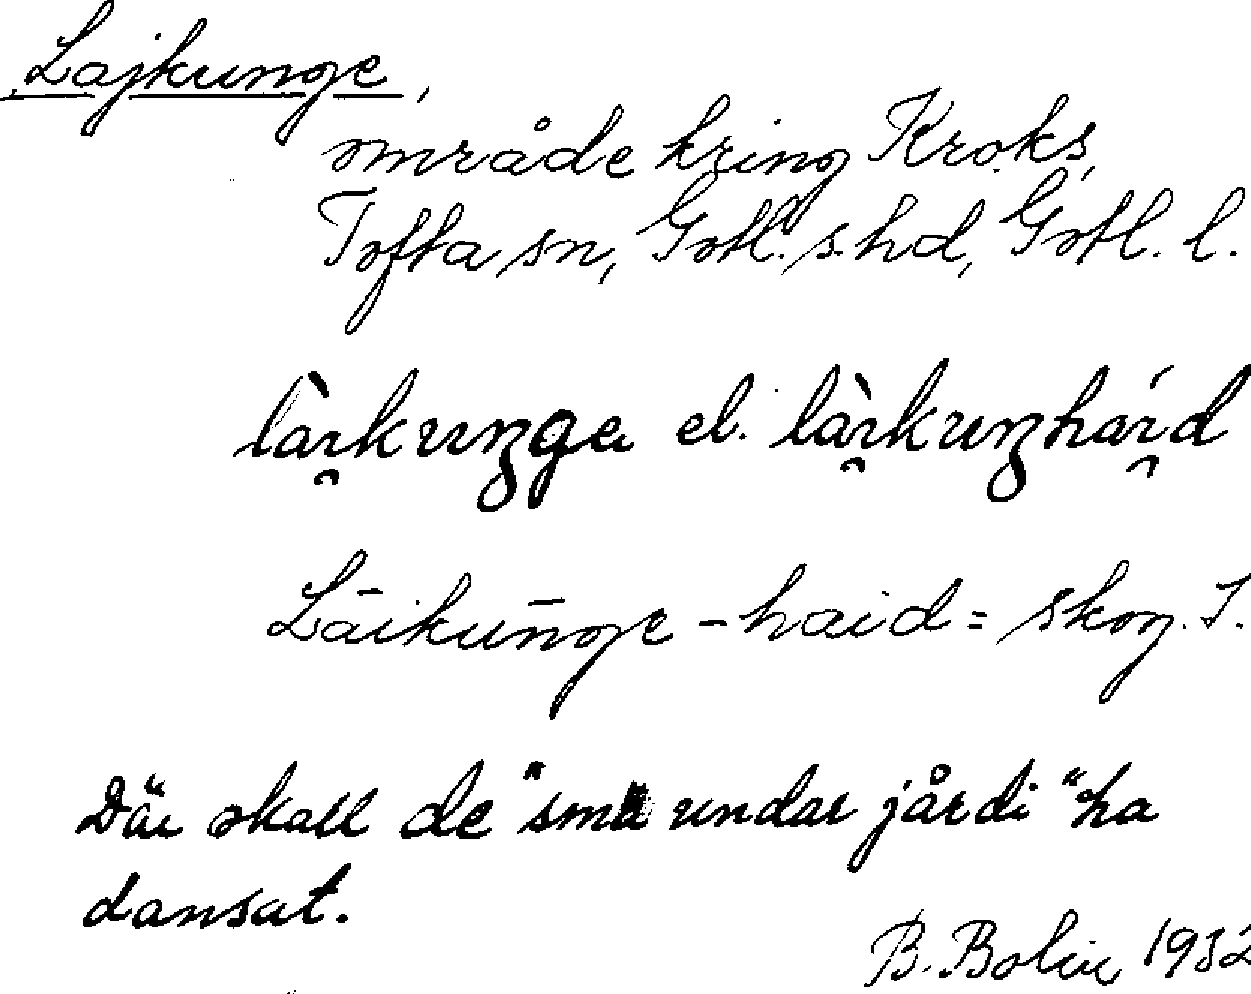 Lajkunge,
område kring Kroks,
Tofta sn, Gotl. s. hd, Gotl. l.
el.
Läikunge - haid = skog. T.
Där skall de "smä undar jårdi" ha
dansat.
B. Bolin 1932